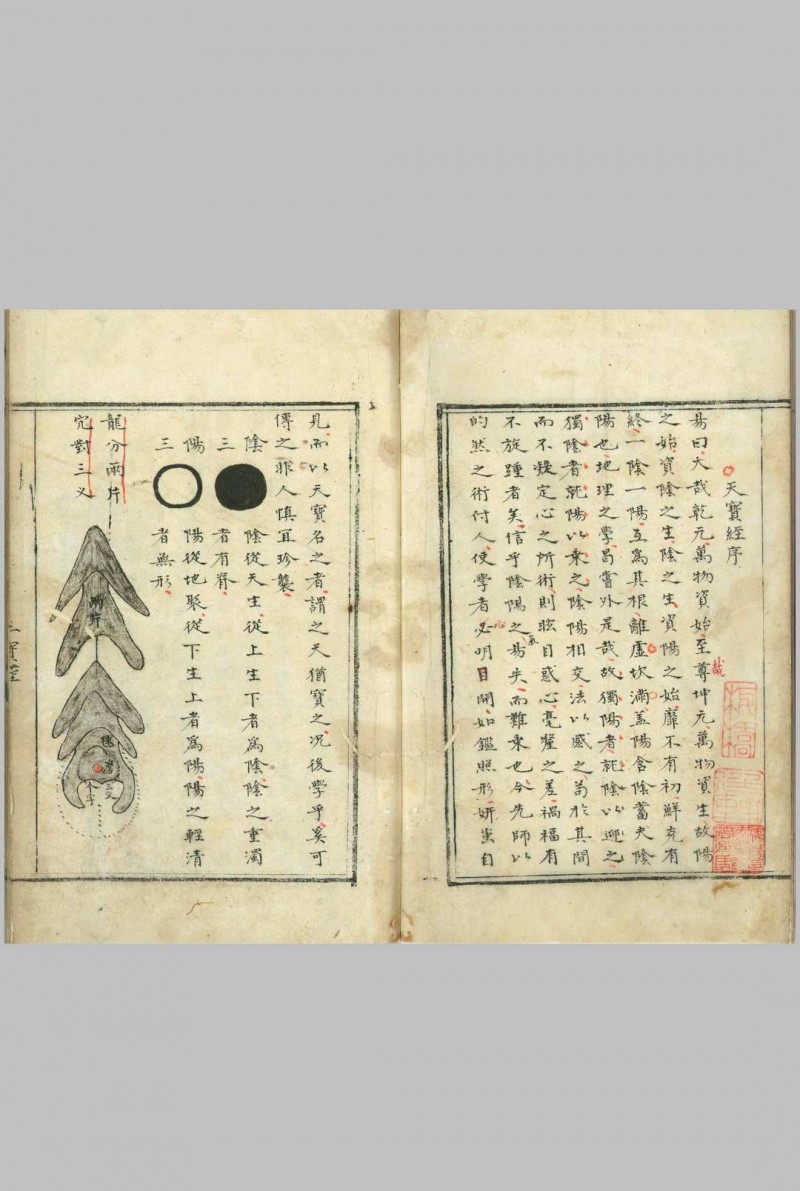 天寶經序
易曰大哉乾元萬物資始至哉尊坤元萬物資生故陽
之始資陰之生陰之生資陽之始靡不有初鮮克有
終一陰一陽互為其根離虛坎滿盖陽含陰蓄夫陰
陽也地理之學曷嘗外是哉故獨陽者就陰以迎之
獨陰者就陽以乘之陰陽相交法以感之苟於其間
而不凝定心之所術則眩目惑心毫釐之差禍福有
不旋踵者矣信乎陰陽之氣易失而難乘也今先師以
的然之術付人使學者必心明目開如鑑照形妍蚩自
見而以天寶名之者謂之天猶寶之况後學乎奚可
傳之非人慎宜珍襲
陰三
陰從天生從上生下者為陰陰之重濁
者有脊
陽三
陽從地聚從下生上者為陽陽之輕清
者無形
龍分兩片
穴對三义
兩片
三义